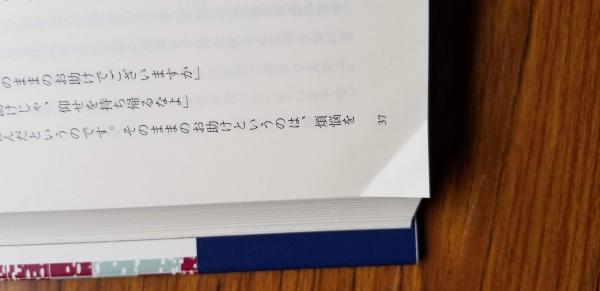 のままのお助けでございますか」
助けじゃ、仰せを持ち帰るなよ」
んだというのです。そのままのお助けというのは、煩悩を
37